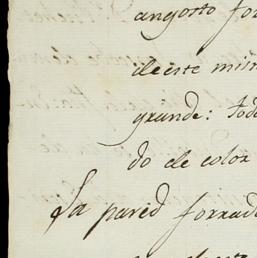 angosto for
de este mis
grande: Tod
do de color
La pared forrad